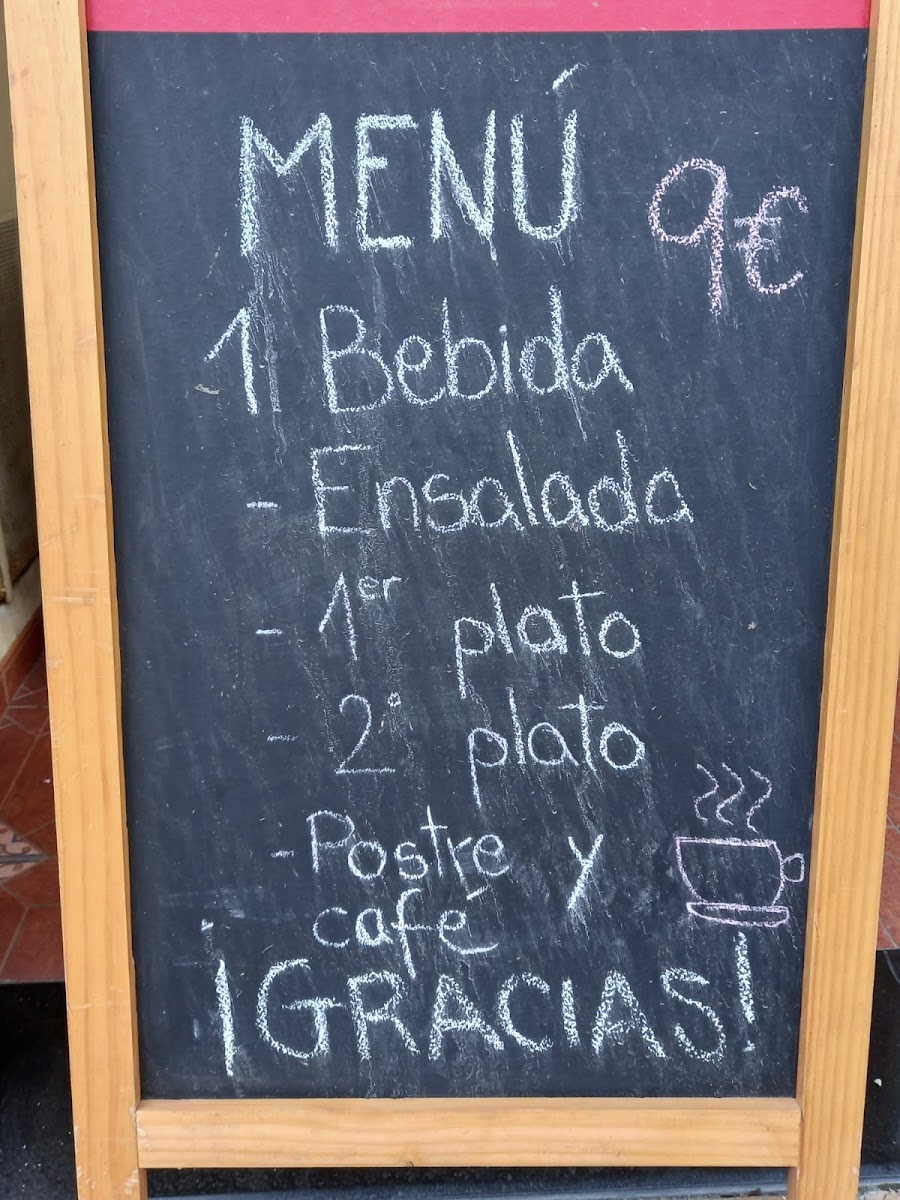 MENÚ 9€
1 Bebida
- Ensalada
- 1er plato
- 2° plato
- Postre y
café
¡GRACIAS!